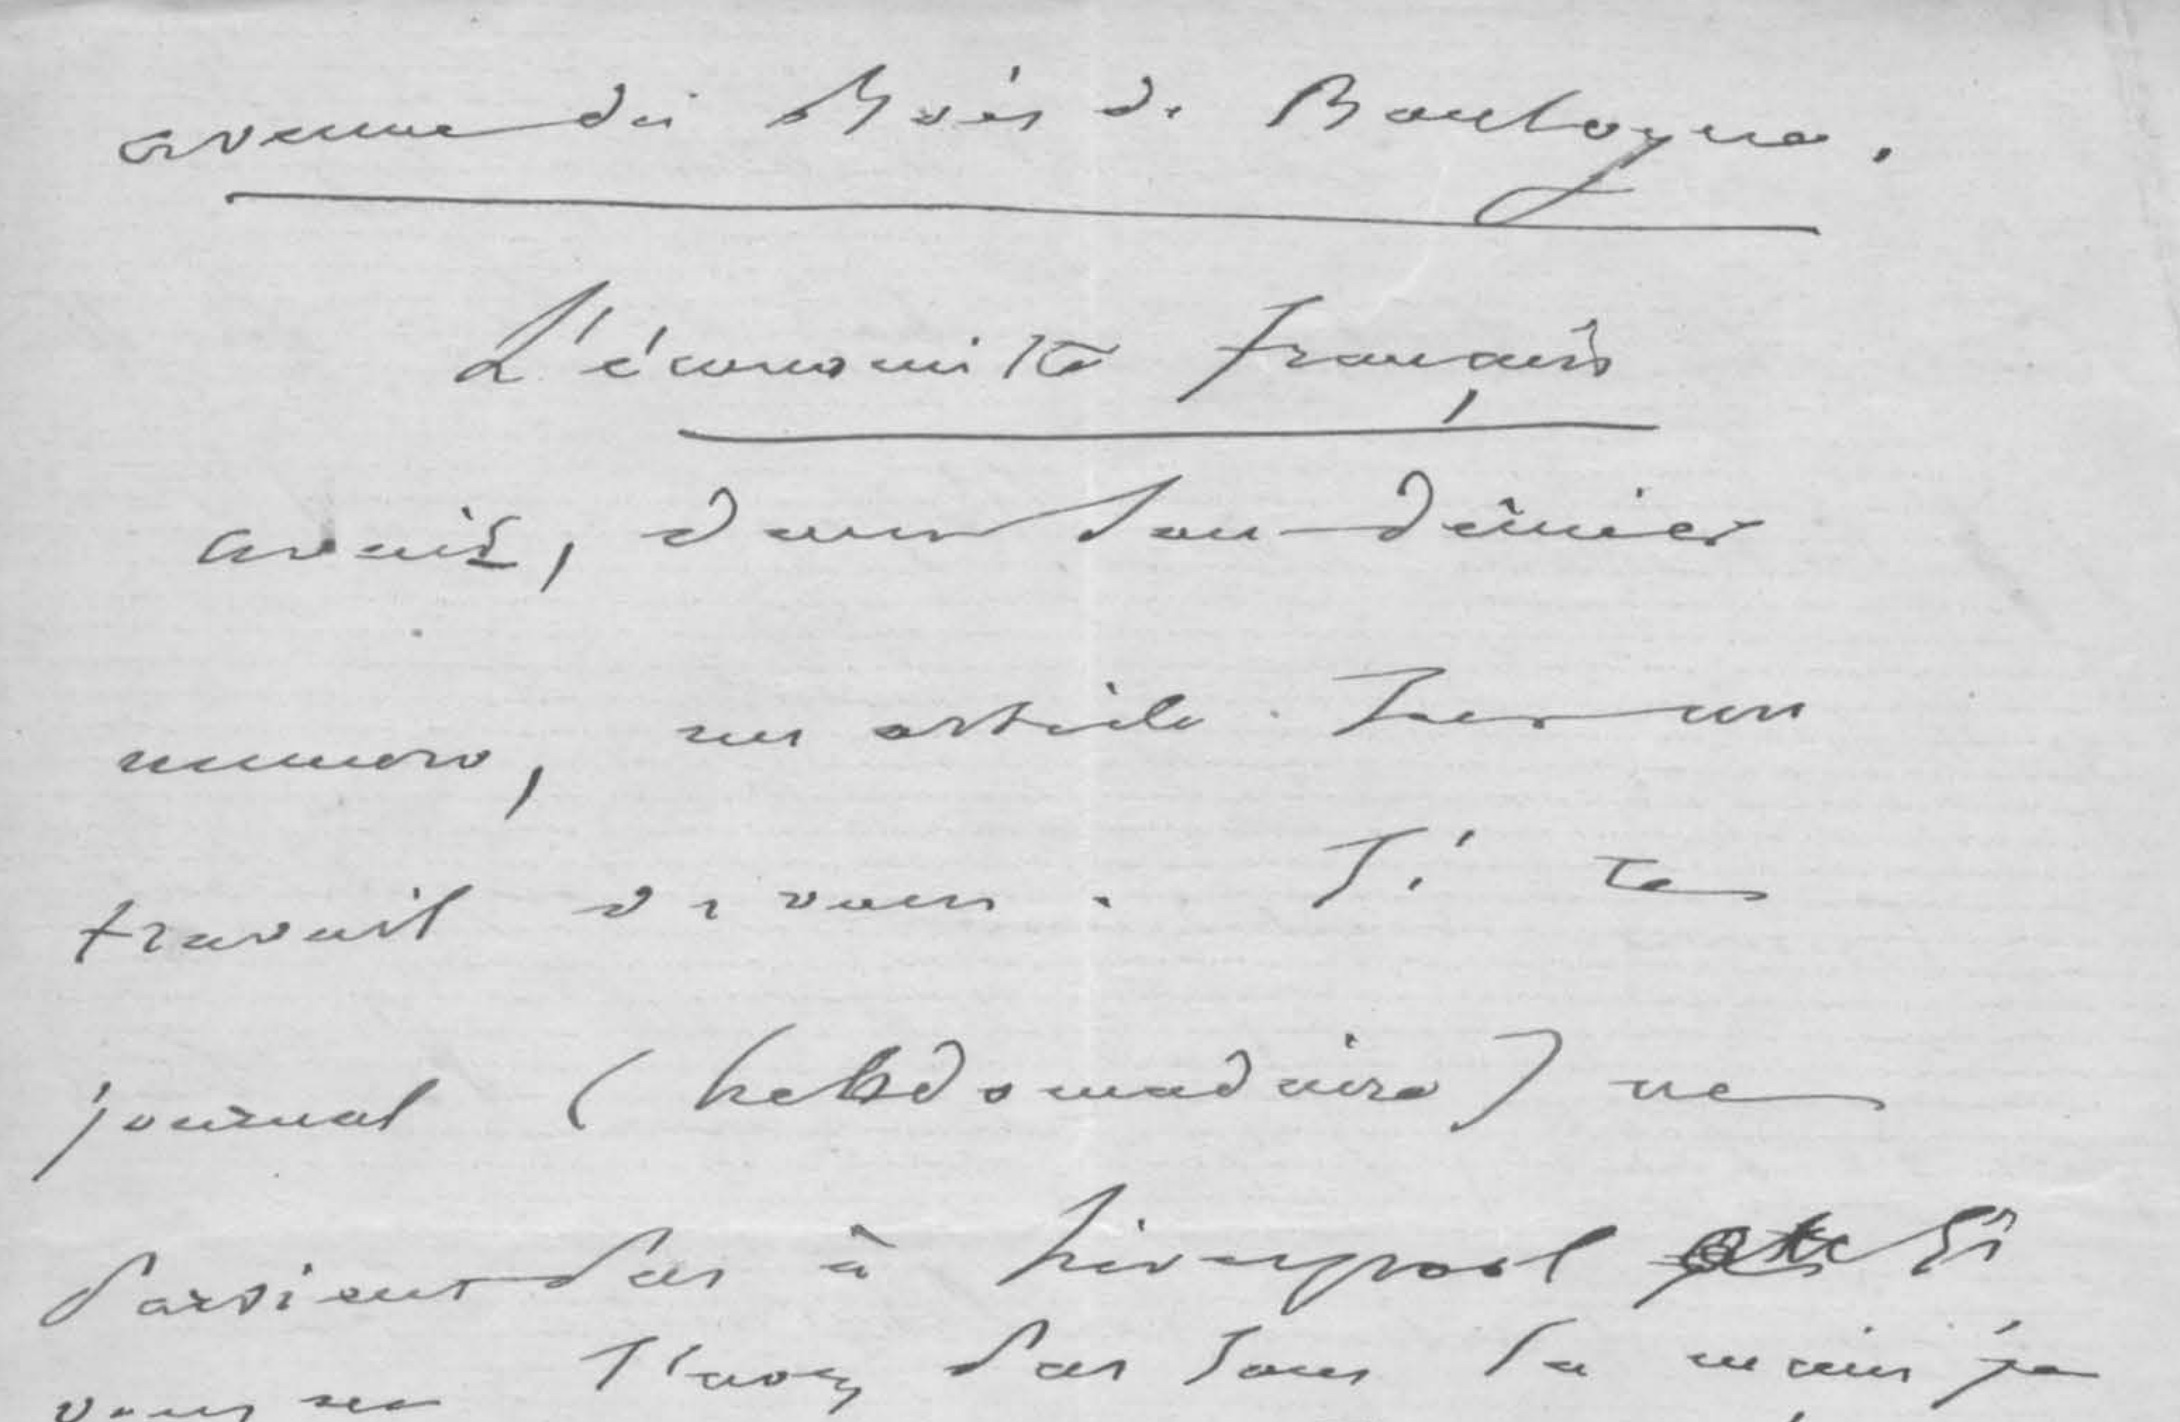 avenue du Bois de Boulogne.
L'économiste français
avait, dans son dernier
numero, un article sur un
travail de vous. Si ce
journal (hebdomadaire) ne
parvient pas à Liverpool et si
vous ne l'avez pas sous la main je